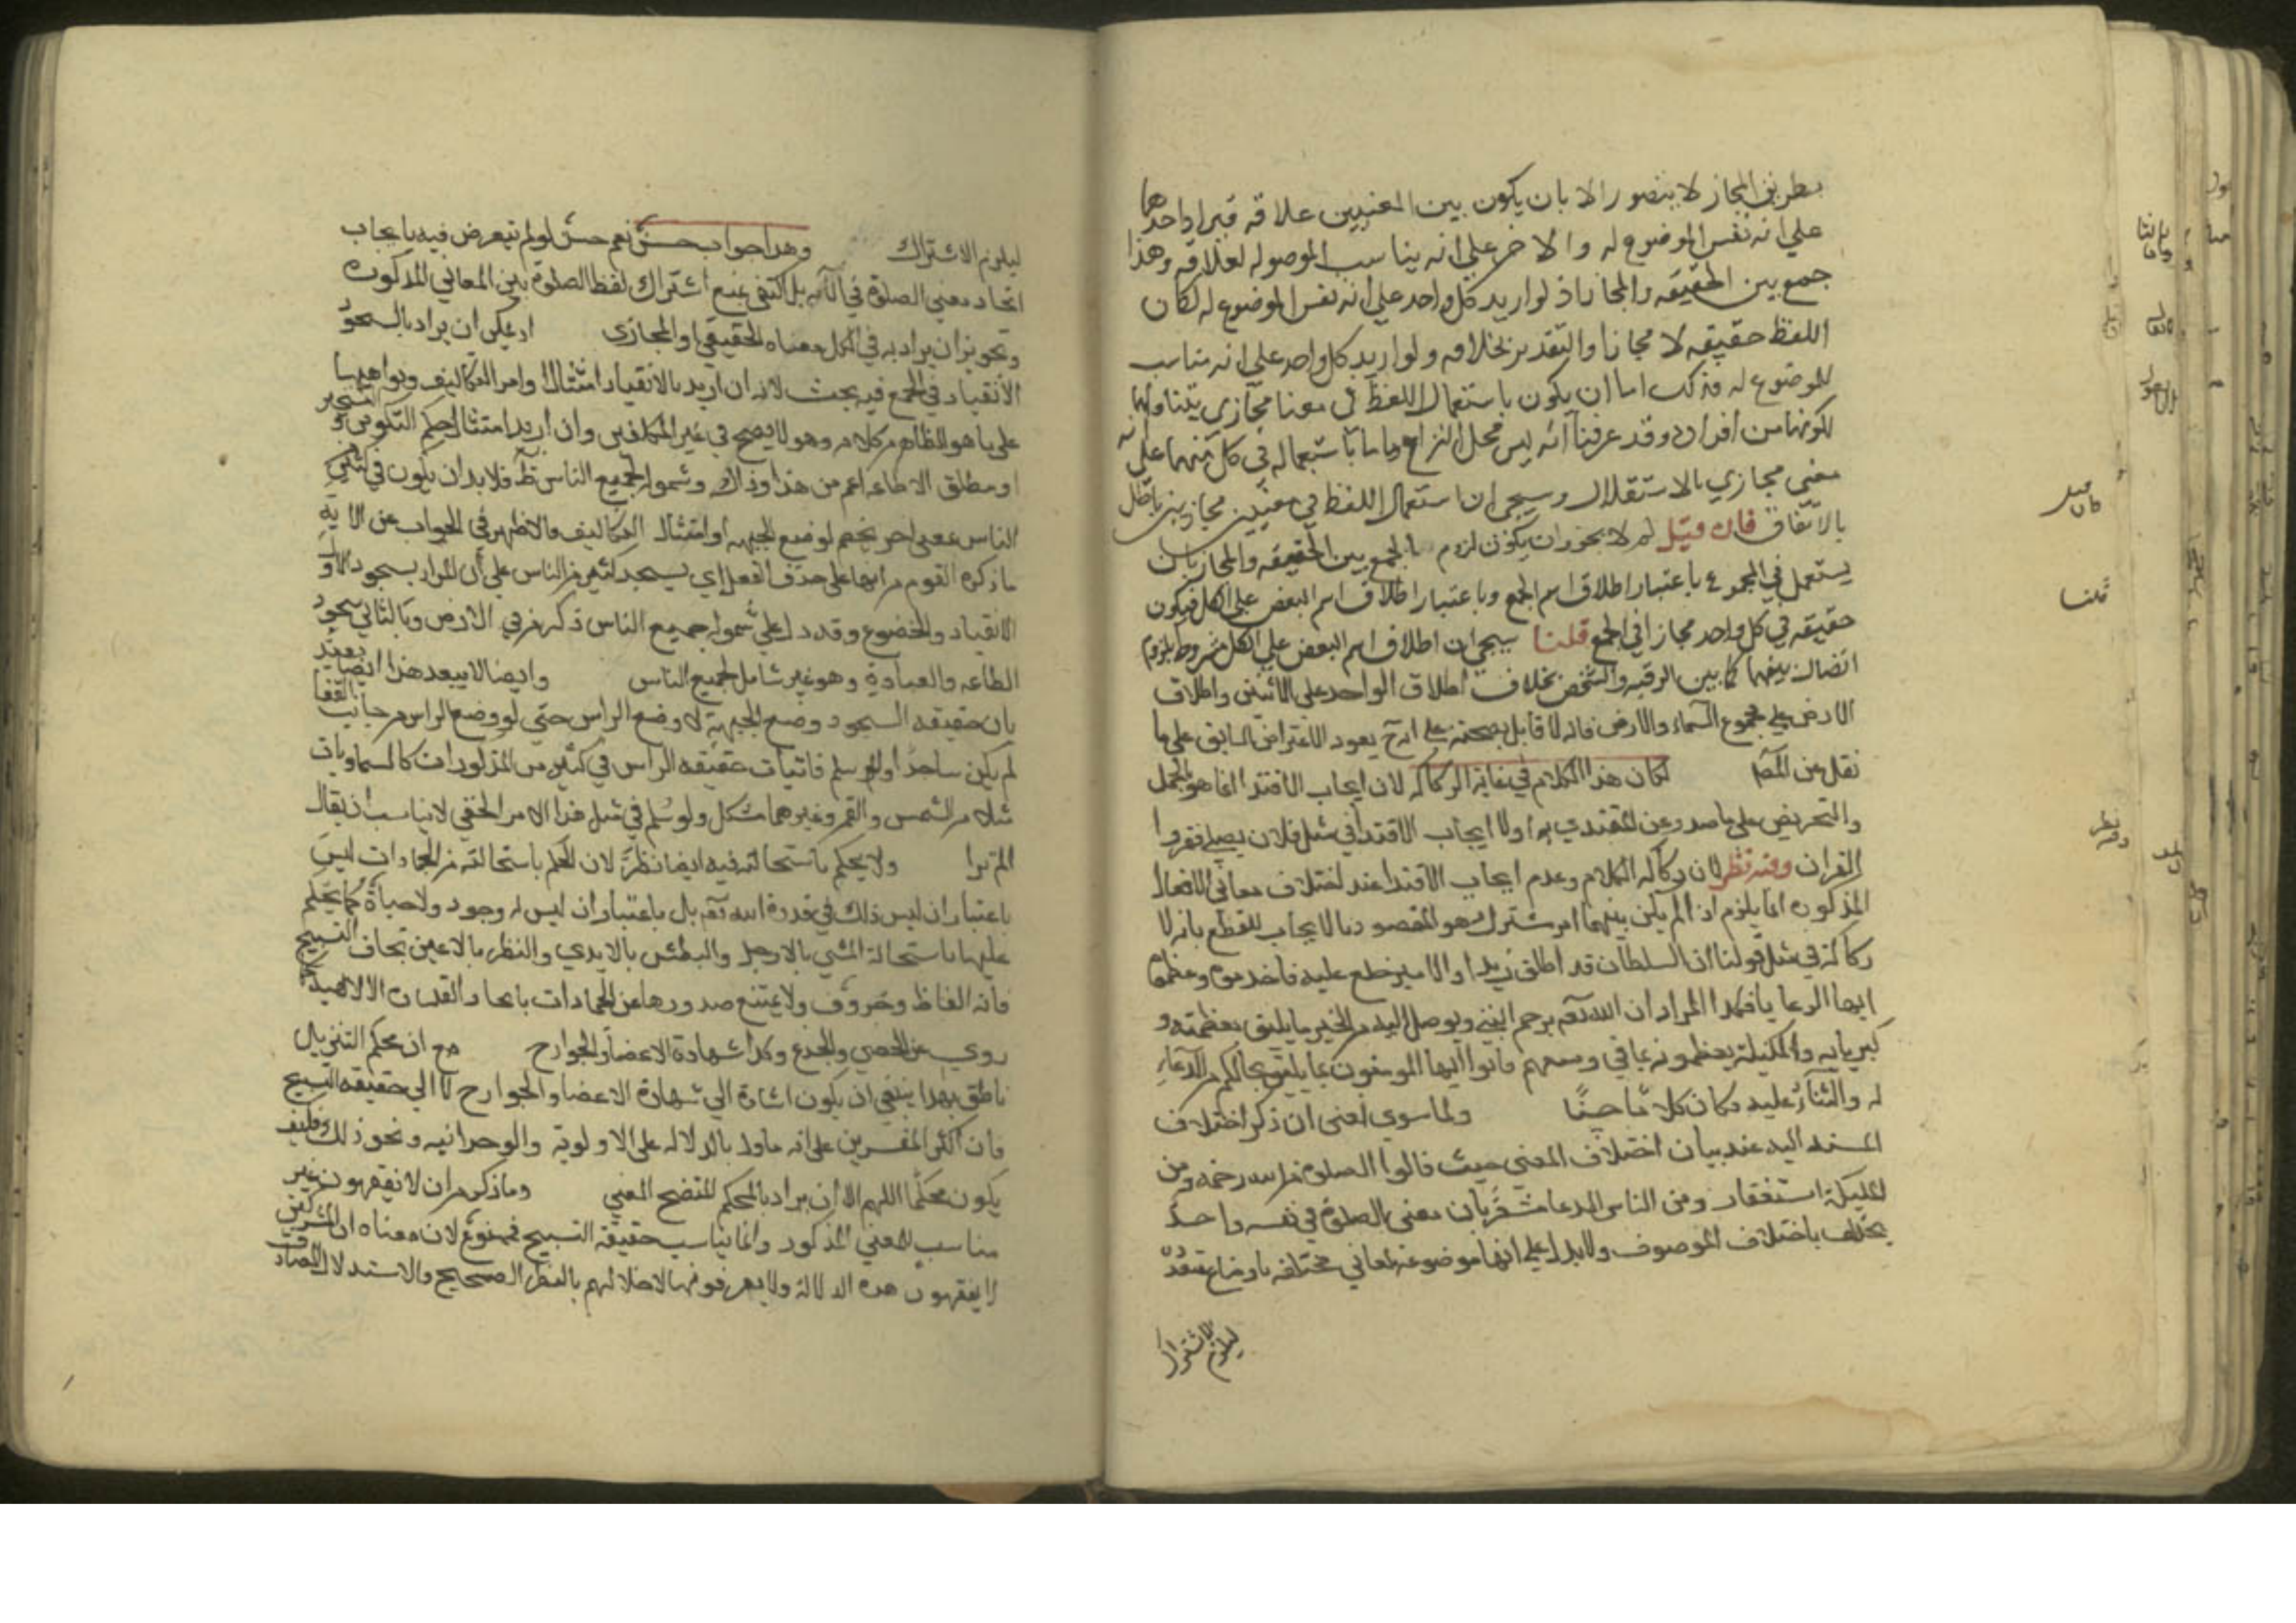 بطريق المجاز لا يتصور الا بان يكون بين المعنيين علاقه فيراد احدهما
علي انه نفس الموضوع له والاخر علي انه يناسب الموضوع له لعلاقه وهذا
جمع بين الحقيقه والمجاز اذ لو اريد كل واحد علي انه نفس الموضوع له لكان
اللفظ حقيقه لا مجازا والتقدير بخلافه ولو اريد كل واحد علي انه مناسب
للموضوع له فذلك اما ان يكون باستعمال اللفظ في معنا مجازي يتناولهما
لكونهما من افراده وقد عرفنا انه ليس محل النزاع واما باستعماله في كل منهما علي انه
معني مجازي بالاستقلال وسيجي ان استعمال اللفظ في معنيين مجازيين باطل
بالاتفاق فان قيل لم لا يجوز ان يكون لزوم الجمع بين الحقيقه والمجاز بان
يستعمل في المجموع باعتبار اطلاق اسم الجمع وباعتبار اطلاق اسم البعض علي الكل فيكون
حقيقه في كل واحد مجازا في الجمع قلنا سيجي ان اطلاق اسم البعض علي الكل مشروط بلزوم
اتصال بينهما كما بين الرقبه والشخص بخلاف اطلاق الواحد علي الاثنين واطلاق
الارض علي مجموع السماء والارض فانه لا قايل بصحته علي انه ح يعود الاعتراض السابق علي ما
نقل عن المص لكان هذا الكلام في غاية الركاكه لان ايجاب الاقتدا انما هو بالحمل
والتحريض علي ما صدر عن المقتدي به اولا ايجاب الاقتدا في مثل فلان يصلي فقروا
القران وفيه نظر لان ركاكه الكلام وعدم ايجاب الاقتدا عند اختلاف معاني الافعال
المذكوره انما يلزم اذا لم يكن بينهما امر مشترك هو المقصود بالايجاب للقطع بانه لا
ركاكة في مثل قولنا ان السلطان قد اطلق زيدا والامير خلع عليه فاخدموه وعظموه
ايها الرعايا فكذا المراد ان الله تعم يرحم النبي ويوصل اليه من الخير ما يليق بعظمته و
كبريايه والمليكة يعظمونه بما في وسعهم فاتوا ايها المومنون بما يليق بحالكم من الدعاء
له والثناء عليه فكان كلاما حسنا ولما سوي اعني ان ذكر اختلاف
المسند اليه عند بيان اختلاف المعني حيث قالوا الصلوة من الله رحمه ومن
المليكة استغفار ومن الناس الدعا مشعر بان معني الصلوة في نفسه واحد
يختلف باختلاف الموصوف ولا يدل علي انها موضوعة لمعاني مختلفه باوضاع متعدده
ليلزم الاشتراك
فان قيل
قلنا
وفيه نظر
ليلزم الاشتراك وهذا جواب حسن نعم حسن لو لم يتعرض فيه بايجاب
اتحاد معني الصلوة في الآية بل اكتفي بمنع اشتراك لفظ الصلوة بين المعاني المذكوره
وتجويز ان يراد به في الكل معناه الحقيقي او المجازي اذ يمكن ان يراد بالسجود
الانقياد في الجمع فيه بحث لانه ان اريد بالانقياد امتثال اوامر التكاليف ونواهيها
علي ما هو الظاهر من كلامه وهو لا يصح في غير المكلفين وان اريد امتثال حكم التكوين و التسخير
او مطلق الاطاعه اعم من هذا وذاك وشموله لجميع الناس ظ فلا بد ان يكون في كثير من
الناس بمعني اخر يخصهم لوضع الجبهه او امتثال التكاليف والاظهر في الجواب عن الاية
ما ذكره القوم من انها علي حذف الفعل اي يسجد كثير من الناس علي أن المراد بسجود الاول
الانقياد والخضوع وقد دل علي شموله جميع الناس ذكر من في الارض وبالثاني سجود
الطاعه والعبادة وهو غير شامل لجميع الناس وايضا لا يبعد هذا ايضا بعيد
بان حقيقه السجود وضع الجبهة لا وضع الراس حتي لو وضع الراس من جانب القفا
لم يكن ساجدا ولو سلم فاثبات حقيقه الراس في كثير من المذكورات كالسماويات
مثلا من الشمس والقمر وغيرهما مشكل ولو سُلم في مثل هذا الامر الخفي لا يناسب ان يقال
الم ترا ولا يحكم باستحالته فيه ايضا نظر لان الحكم باستحالته من الجمادات ليس
باعتبار ان ليس ذلك في قدرة الله تعم بل باعتبار ان ليس له وجود ولا حياة كما يحكم
عليها باستحالة المشي بالارجل والبطش بالايدي والنظر بالاعين بخلاف التسبيح
فانه الفاظ وحروف ولا يمتنع صدورها عن الجمادات بايجاد القدرة الالاهية كما
روي عن الحصي والجذع وكذا شهادة الاعضا والجوارح مع ان محكم التنزيل
ناطق بهذا ينبغي ان يكون اشارة الي شهادة الاعضا والجوارح لا الي حقيقه التسبيح
فان اكثر المفسرين علي انه ماول بالدلاله علي الاولوية والوحدانيه ونحو ذلك وكيف
يكون محكما اللهم الا ان يراد بالمحكم المتضح المعني وما ذكر من ان لا تفقهون غير
مناسب للمعني المذكور وانما يناسب حقيقة التسبيح فممنوع لان معناه ان المشركين
لا يفقهون هذه الدلالة ولا يعرفونها لاخلالهم بالنظر الصحيح والاستدلال الصادق